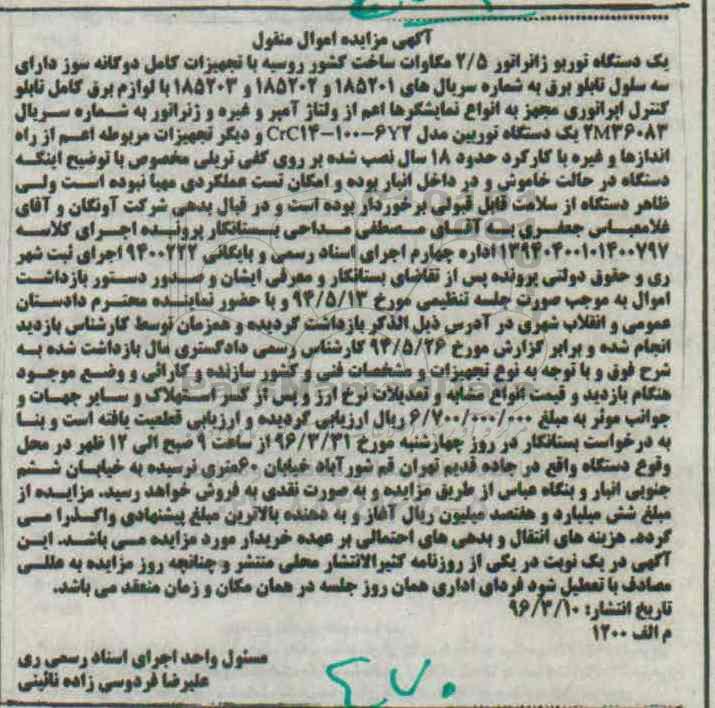 آگهی مزایده اموال منقول
یک دستگاه توربو ژانراتور ۲/۵ مگاوات ساخت کشور روسیه با تجهیزات کامل دوگانه سوز دارای
سه سلول تابلو برق به شماره سریال های ۱۸۵۲۰۱ و ۱۸۵۲۰۲ و ۱۸۵۲۰۳ با لوازم برق کامل تابلو
کنترل اپراتوری مجهز به انواع نمایشگرها اعم از ولتاژ آمپر و غیره و ژنراتور به شماره سریال
۲M۳۶۰۸۳ یک دستگاه توربین مدل CrC۱۴-۱۰۰-۶۷۲ و دیگر تجهیزات مربوطه اعم از راه
اندازها و غیره با کارکرد حدود ۱۸ سال نصب شده بر روی کفی تریلی مخصوص با توضیح اینکه
دستگاه در حالت خاموش و در داخل انبار بوده و امکان تست عملکردی مهیا نبوده است ولی
ظاهر دستگاه از سلامت قابل قبولی برخوردار بوده است و در قبال بدهی شرکت آونگان و آقای
غلامعباس جعفری به آقای مصطفی مداحی بستانکار پرونده اجرای کلاسه
۱۳۹۴۰۴۰۰۱۰۱۴۰۰۷۹۷ اداره چهارم اجرای اسناد رسمی و بایگانی ۹۴۰۰۲۲۲ اجرای ثبت شهر
ری و حقوق دولتی پرونده پس از تقاضای بستانکار و معرفی ایشان و صدور دستور بازداشت
اموال به موجب صورت جلسه تنظیمی مورخ ۹۴/۵/۱۳ و با حضور نماینده محترم دادستان
عمومی و انقلاب شهری در آدرس ذیل الذکر بازداشت گردیده و همزمان توسط کارشناس بازدید
انجام شده و برابر گزارش مورخ ۹۴/۵/۲۶ کارشناس رسمی دادگستری مال بازداشت شده به
شرح فوق و با توجه به نوع تجهیزات و مشخصات فنی و کشور سازنده و کارائی و وضع موجود
هنگام بازدید و قیمت انواع مشابه و تعدیلات نرخ ارز و پس از کسر استهلاک و سایر جهات و
جوانب موثر به مبلغ ۶/۷۰۰/۰۰۰/۰۰۰ ریال ارزیابی گردیده و ارزیابی قطعیت یافته است و بنا
به درخواست بستانکار در روز چهارشنبه مورخ ۹۶/۳/۳۱ از ساعت ۹ صبح الی ۱۲ ظهر در محل
وقوع دستگاه واقع در جاده قدیم تهران قم شورآباد خیابان ۶۰متری نرسیده به خیابان ششم
جنوبی انبار و بنگاه عباس از طریق مزایده و به صورت نقدی به فروش خواهد رسید. مزایده از
مبلغ شش میلیارد و هفتصد میلیون ریال آغاز و به دهنده بالاترین مبلغ پیشنهادی واگذرا می
گردد. هزینه های انتقال و بدهی های احتمالی بر عهده خریدار مورد مزایده می باشد. این
آگهی در یک نوبت در یکی از روزنامه کثیرالانتشار محلی منتشر و چنانچه روز مزایده به عللی
مصادف با تعطیل شود فردای اداری همان روز جلسه در همان مکان و زمان منعقد می باشد.
تاریخ انتشار: ۹۶/۳/۱۰
م الف ۱۲۰۰
مسئول واحد اجرای اسناد رسمی ری
علیرضا فردوسی زاده نائینی
۴۷۰